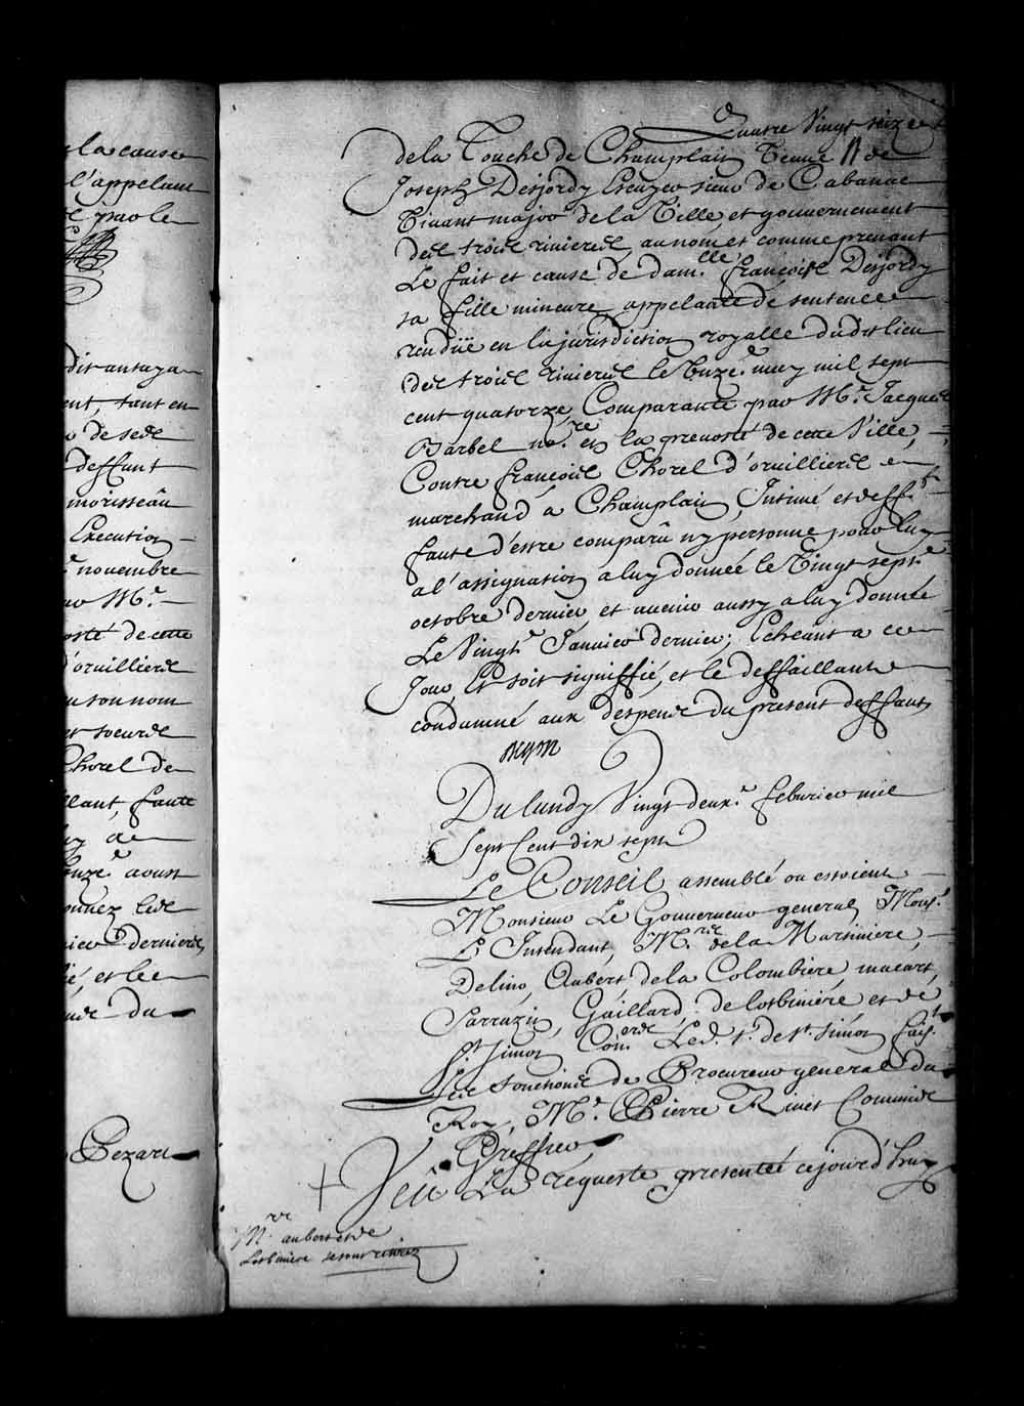 la cause
l'appelant
par le
dit an taya
ent, tant en
de ses
deffunt
morisseau
Execution
novembre
Mr.
osté de cette
d'orvillieres
en son nom
et soeurs
Chorel de
llant, faute
aoust
donnez les
dernieres,
ié, et le
du
Pezard
Quatre Vingt seize
de la Touche de Champlain Veuve de
Joseph Desjordy Escuyer sieur de Cabanac
Vivant major de la Ville et gouvernement
des trois rivieres, au nom et comme prenant
Le fait et cause de damlle. françoise Desjordy
sa fille mineure, appelante de sentence
rendüe en la jurisdiction royalle dudit lieu
des trois rivieres le Unze. may mil sept
cent quatorze, Comparante par Mr. Jacques
Barbel nore. en la prevosté de cette Ville,
Contre françois Chorel d'orvillieres
marchand a Champlain, Intimé et defft.
faute d'estre comparû ny personne pour luy
a l'assignation a luy donnée le Vingt septe.
octobre dernier, et avenir aussy a luy donné
Le Vingte. Janvier dernier; Echeant a ce
Jour, Et soit signiffié, et le deffaillant
condamné aux despens du present deffaut
Du lundy Vingt deuxe. febvrier mil
Sept Cent dix sept
Le Conseil assemblé ou estoient
Monsieur Le Gouverneur general, Monsr.
L'Intendant, Mrs. de la Martiniere,
Delino, Aubert, de la Colombiere, macart,
Sarrazin, Gaillard, de lotbiniére et de
St. Simon Coners. Led. sr. de st. simon fait.
les fonctions de Procureur general du
Roy, Me. Pierre Rivet Commis
Greffier
Veu La requeste presentée cejourd'huy
Mrs. aubert et de
Lotbiniere se sont retirez